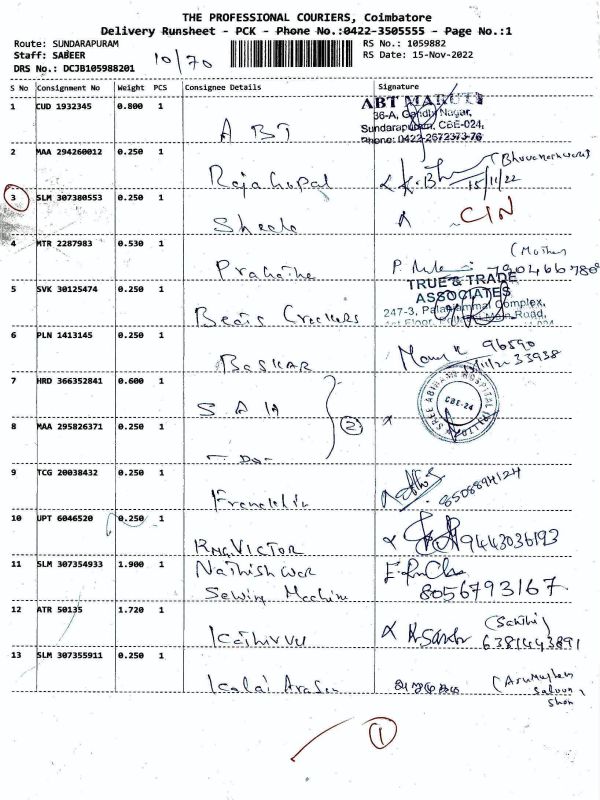 THE PROFESSIONAL COURIERS, Coimbatore
Delivery Runsheet - PCK - Phone No.:0422-3505555 - Page No.:1
Route: SUNDARAPURAM
RS No.: 1059882
Staff: SABEER
RS Date: 15-Nov-2022
DRS No.: DCJB105988201
10/70
S No Consignment No Weight PCS Consignee Details Signature
1 CUD 1932345 0.800 1 ABT
ABT MARUTI
36-A, Gandhi Nagar,
Sundarapuram, CBE-024,
Phone: 0422-2672373-76
2 MAA 294260012 0.250 1 Rajagopal
15/11/22
3 SLM 307380553 0.250 1 Sheela
CIN
4 MTR 2287983 0.530 1
(Mother)
5 SVK 30125474 0.250 1 Beats Crackers
TRUE & TRADE
ASSOCIATES
247-3, Palaniammal Complex,
1st Floor, Main Road,
6 PLN 1413145 0.250 1 BASKAR
96590
33938
7 HRD 366352841 0.600 1
2
CBE-24
8 MAA 295826371 0.250 1 - Do -
9 TCG 20038432 0.250 1 Franklin
8508894124
10 UPT 6046520 0.250 1 VICTOR
9443036193
11 SLM 307354933 1.900 1 Nathishwar
Sewing Machine
8056793167
12 ATR 50135 1.720 1
(Sakthi)
6381443891
13 SLM 307355911 0.250 1 Kalai Arasu
(Arumugham
saloon
shop
1